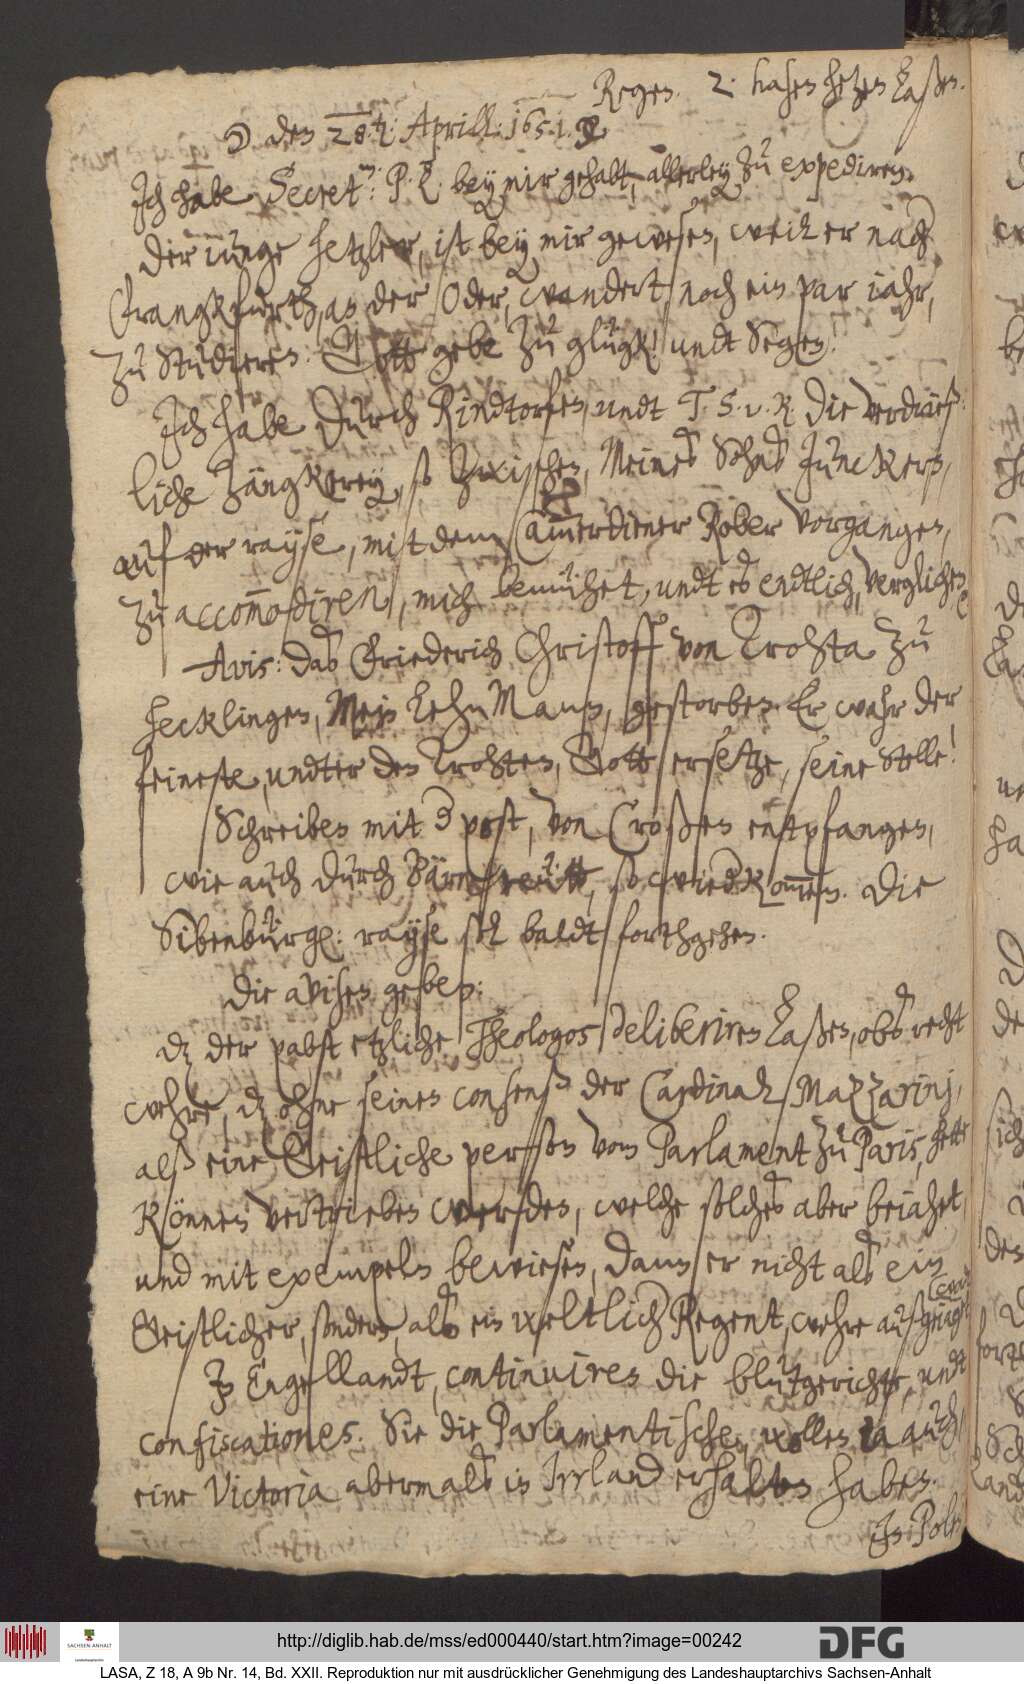 Regen. 2. hasen hetzen laßen.
☽ den 28. t: Aprill: 1651.
Ich habe Secret: P. L. bey mir gehabt, allerley zu expediren.
Der iunge hetzler, ist bey mir gewesen, weil er nach
Frangkfurth, an der Oder, wandert, noch ein par iahr,
zu studieren. Gott gebe zu glügk! undt Segen!
Ich habe durch Rindtorfen, undt T. S. v. R. die verdrieß-
liche zängkerey, so zwischen, Meines Sohns Junckern,
auf der rayse, mit dem Cammerdiener Rober vorgangen,
zu accommodiren, mich bemühet, undt es endtlich, verglichen.
Avis: das Friederich Christoff von Krohsta zu
Hecklingen, Mein LehnMann, gestorben. Er wahr der
feineste, undter den Krohsten, Gott ersetze, seine stelle!
Schreiben mit der post, von Croßen entpfangen,
wie auch durch Bärnreütt, so wiederkommen. Die
Sibenbürg: rayse sol baldt forthgehen.
Die avisen geben:
daß der pabst etzliche, Theologos deliberiren laßen, obs recht
wehre, daß ohne seinen consenß der Cardinal Mazzarinj,
alß eine Geistliche person vom Parlament zu Paris, hette
können vertrieben werden, welche solches aber beiahet,
und mit exempeln bewiesen, dann er nicht als ein
Geistlicher, sondern als ein weltlich Regent, wehre außgeiagt
In Engellandt, continuiren die blutgerichte, undt
confiscationes. Sie die Parlamentische, wollen ia auch,
eine Victoria abermals in Irrland erhalten haben.
In Pole
http://diglib.hab.de/mss/ed000440/start.htm?image=00242
DFG
SACHSEN-ANHALT
LASA, Z 18, A 9b Nr. 14, Bd. XXII. Reproduktion nur mit ausdrücklicher Genehmigung des Landeshauptarchivs Sachsen-Anhalt